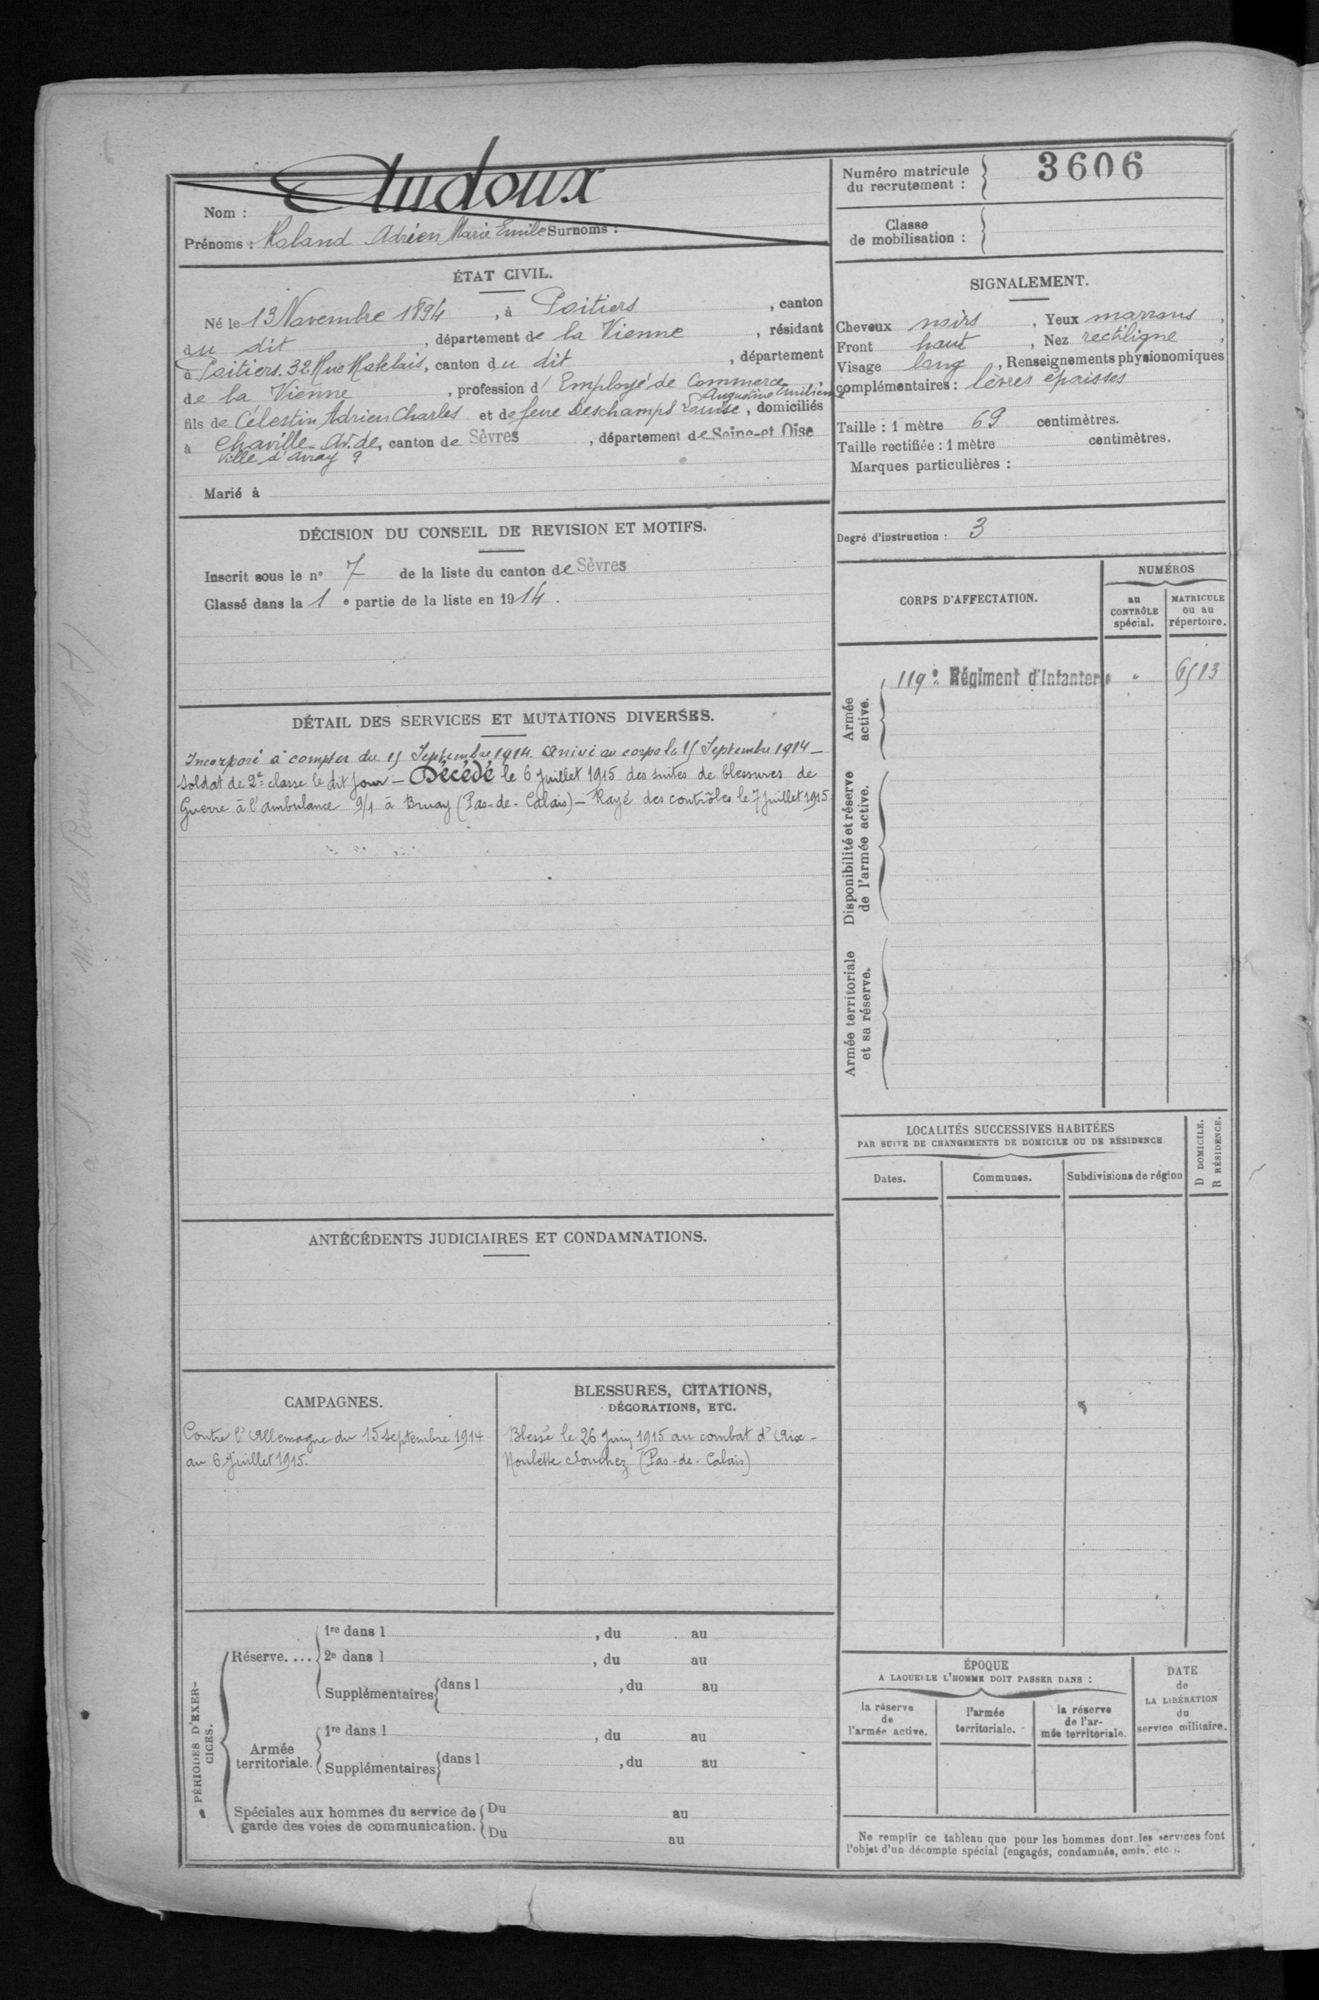 Nom : Audoux
Prénoms : Roland Adrien Marie Emile Surnoms :
Numéro matricule du recrutement : 3606
Classe de mobilisation :
ÉTAT CIVIL.
Né le 13 Novembre 1894, à Poitiers, canton
du dit, département de la Vienne, résidant
à Poitiers. 32 Rue, canton du dit, département
de la Vienne, profession d' Employé de Commerce,
fils de Célestin Adrien Charles et de feue Deschamps Louise Augustine Emilienne, domiciliés
à Chaville Av. de, canton de Sèvres, département de Seine-et-Oise
Ville d'avray 9
Marié à
SIGNALEMENT.
Cheveux noirs, Yeux marrons,
Front haut, Nez rectiligne,
Visage long, Renseignements physionomiques
complémentaires : lèvres épaisses
Taille : 1 mètre 69 centimètres.
Taille rectifiée : 1 mètre centimètres.
Marques particulières :
Degré d'instruction : 3
DÉCISION DU CONSEIL DE REVISION ET MOTIFS.
Inscrit sous le n° 7 de la liste du canton de Sèvres
Classé dans la 1e partie de la liste en 1914.
CORPS D'AFFECTATION.
NUMÉROS
au CONTRÔLE spécial.
MATRICULE ou au répertoire.
Armée active.
119e Régiment d'Infanterie " 6513
Disponibilité et réserve de l'armée active.
Armée territoriale et sa réserve.
DÉTAIL DES SERVICES ET MUTATIONS DIVERSES.
Incorporé à compter du 15 Septembre 1914. Arrivé au corps le 15 Septembre 1914 –
Soldat de 2e classe le dit jour – Décédé le 6 juillet 1915 des suites de blessures de
Guerre à l'ambulance 9/1 à Bruay (Pas-de-Calais) – Rayé des contrôles le 7 juillet 1915
LOCALITÉS SUCCESSIVES HABITÉES
PAR SUITE DE CHANGEMENTS DE DOMICILE OU DE RÉSIDENCE
Dates.
Communes.
Subdivisions de région
D DOMICILE.
R RÉSIDENCE.
ANTÉCÉDENTS JUDICIAIRES ET CONDAMNATIONS.
CAMPAGNES.
Contre l'Allemagne du 15 septembre 1914
au 6 juillet 1915.
BLESSURES, CITATIONS,
DÉCORATIONS, ETC.
Blessé le 26 Juin 1915 au combat d'Aix-
Noulette Souchez (Pas-de-Calais)
PÉRIODES D'EXERCICES.
Réserve....
1re dans l , du au
2e dans l , du au
Supplémentaires dans l , du au
Armée territoriale.
1re dans l , du au
Supplémentaires dans l , du au
Spéciales aux hommes du service de
garde des voies de communication.
Du au
Du au
ÉPOQUE
A LAQUELLE L'HOMME DOIT PASSER DANS :
la réserve de l'armée active.
l'armée territoriale.
la réserve de l'armée territoriale.
DATE de LA LIBÉRATION du service militaire.
Ne remplir ce tableau que pour les hommes dont les services font
l'objet d'un décompte spécial (engagés, condamnés, omis, etc.).